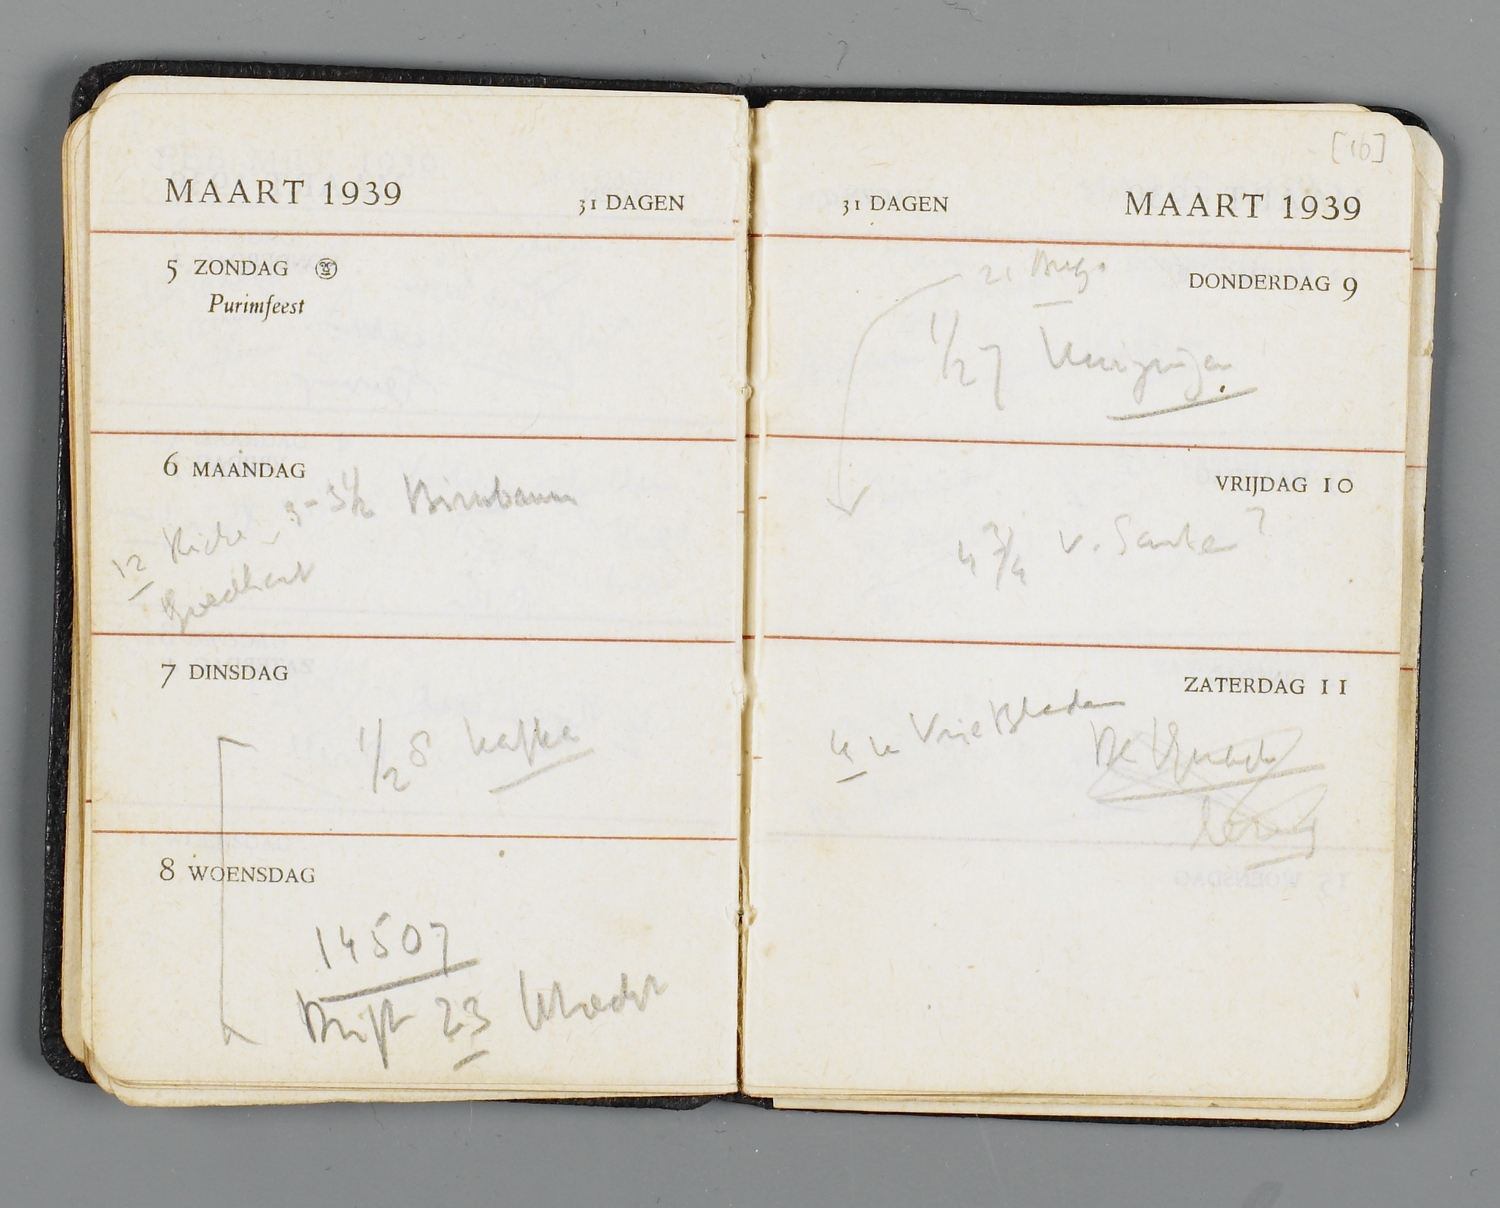 MAART 1939 31 DAGEN
5 ZONDAG
Purimfeest
6 MAANDAG
3-5½ Birnbaum
12
Goedhart
7 DINSDAG
½8 Kafka
8 WOENSDAG
14507
Drift 23 Utrecht
[16]
31 DAGEN MAART 1939
DONDERDAG 9
½7
VRIJDAG 10
4¾ v. Santen ?
ZATERDAG 11
4 u Vrije Bladen
De